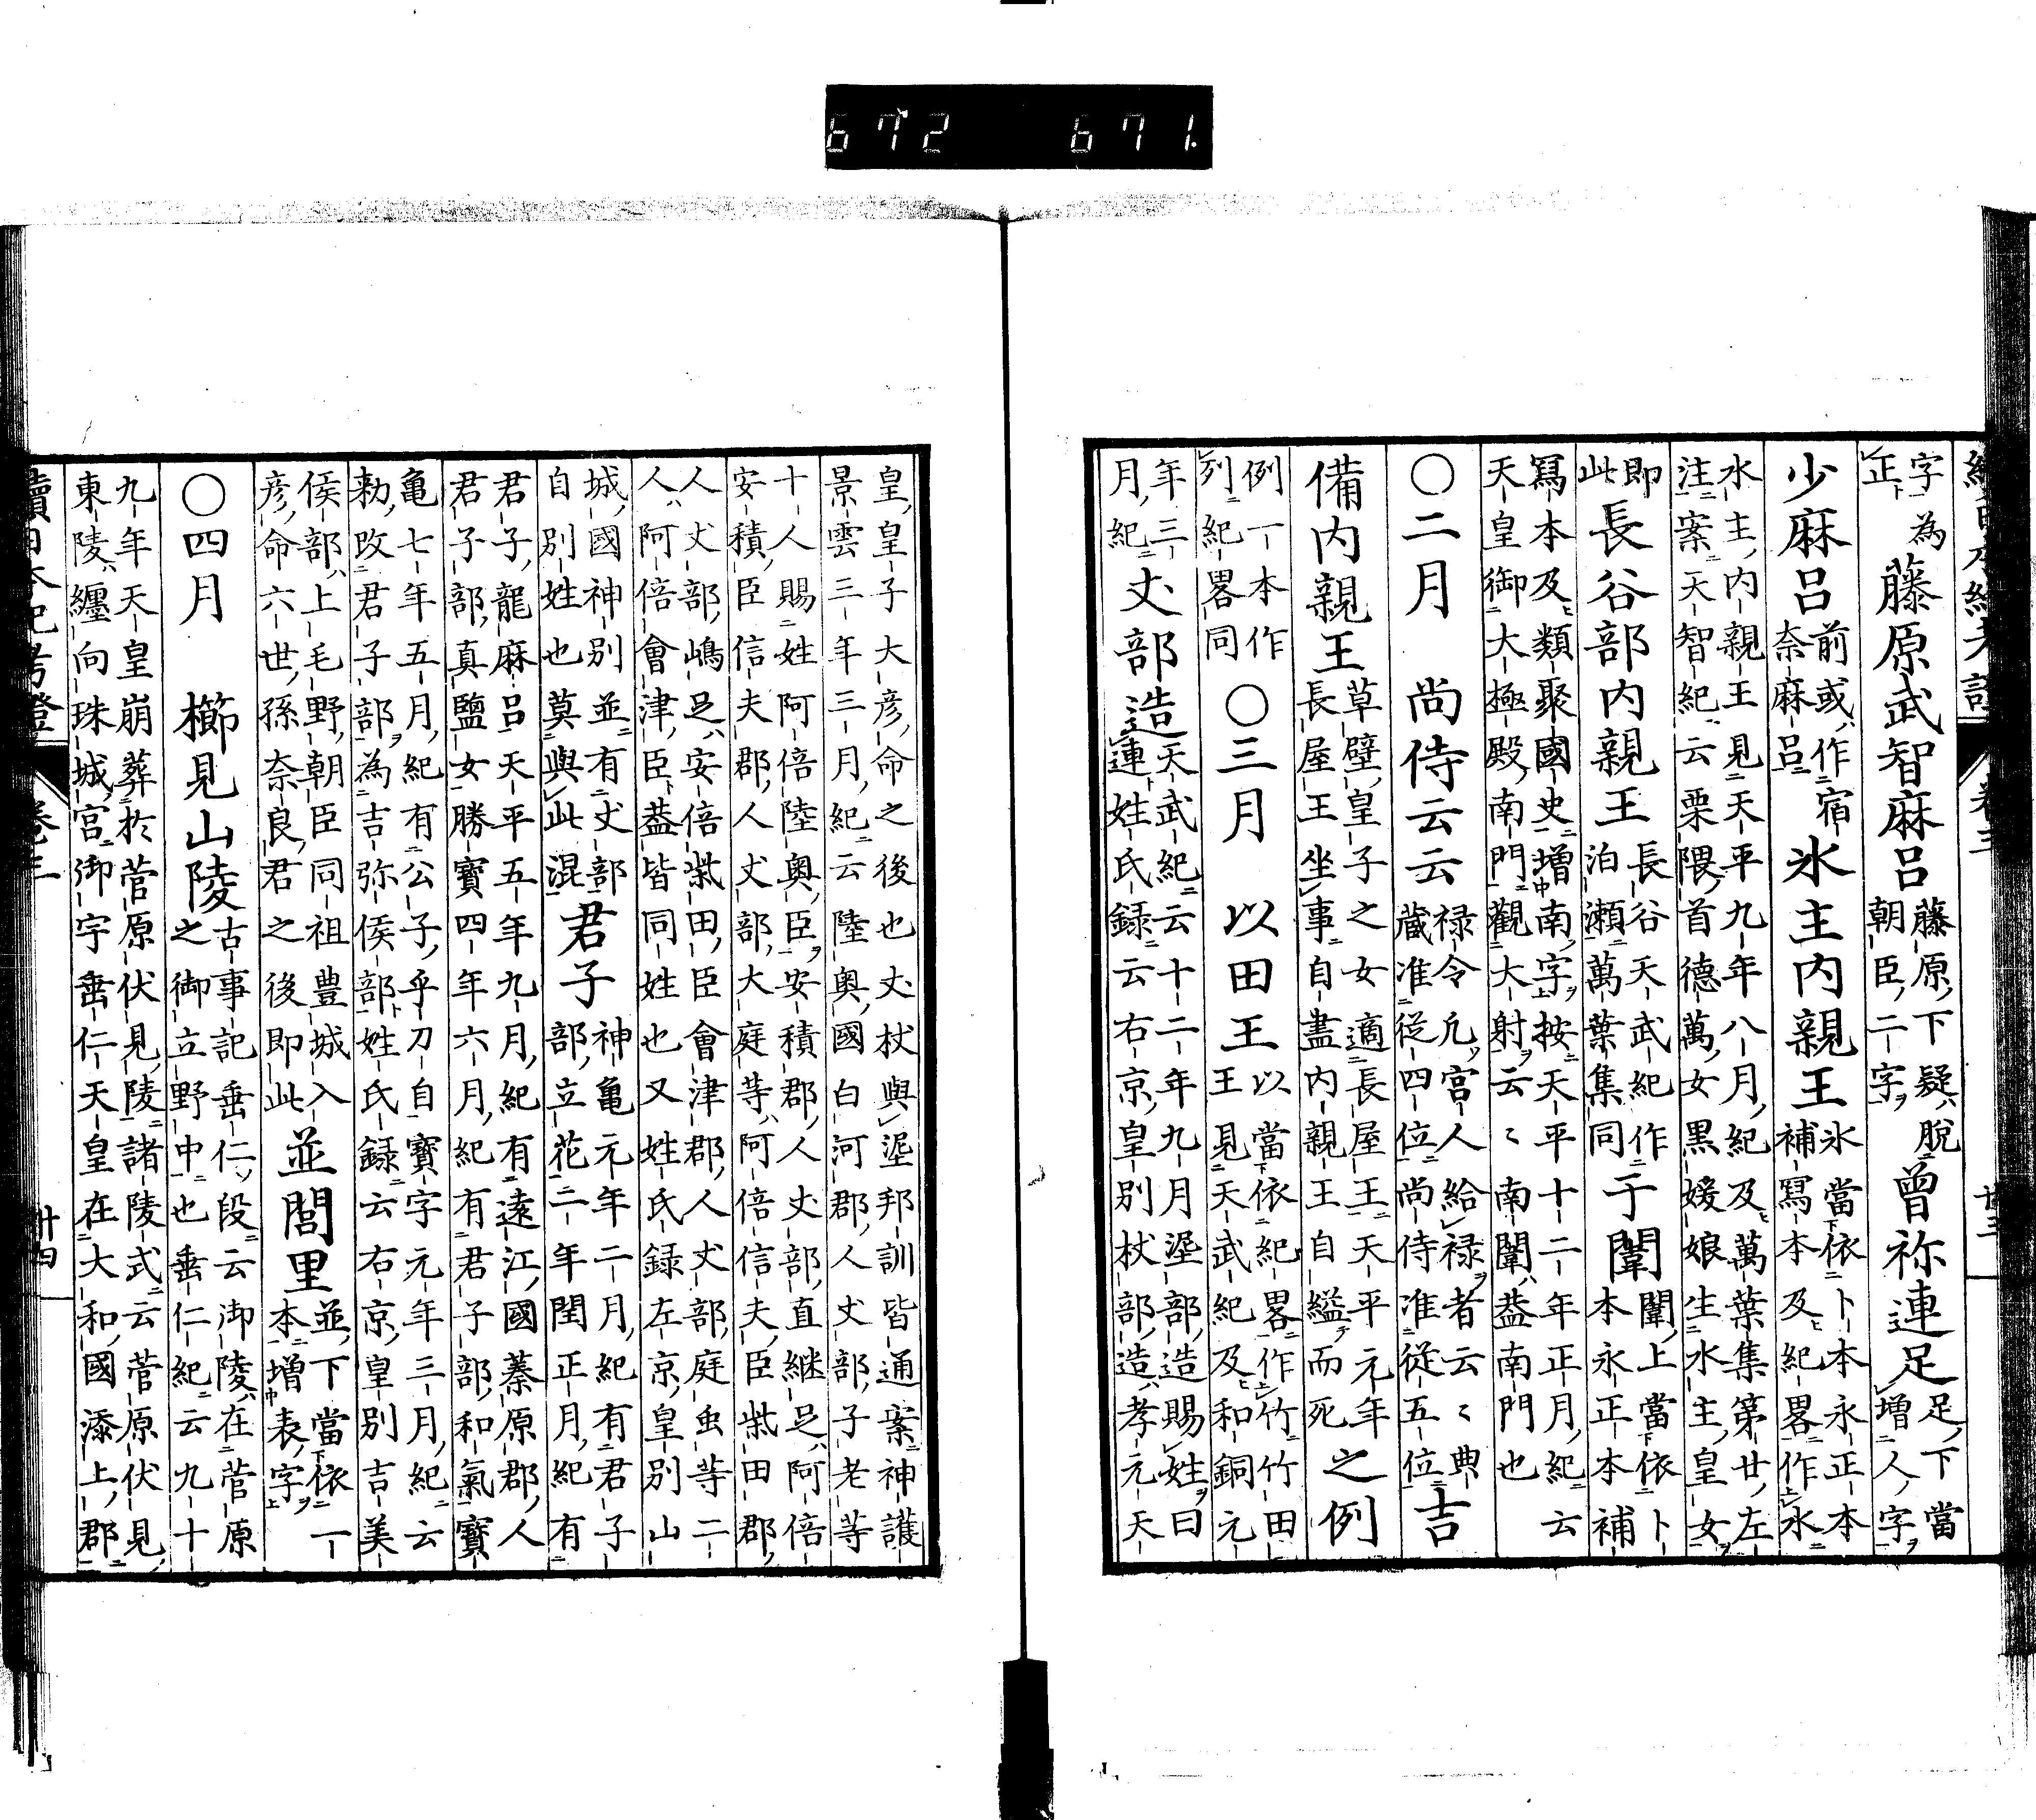 字為
正
藤原武智麻呂
藤原下疑脱
朝臣二字
曾祢連足
足下當
增人字
少麻呂
前或作宿
奈麻呂
氷主内親王
氷當依卜本永正本
補寫本及紀畧作水
水主内親王見天平九年八月紀及萬葉集第廿左
注案天智紀云栗隈首德萬女黒媛娘生水主皇女
即
此
長谷部内親王
長谷天武紀作
泊瀬萬葉集同
于闈
闈上當依卜
本永正本補
寫本及類聚國史增南字按天平十二年正月紀云
天皇御大極殿南門觀大射云〻南闈蓋南門也
〇二月 尚侍云云
禄令凡宮人給禄者云〻典
藏准從四位尚侍准從五位
吉
備内親王
草壁皇子之女適長屋王天平元年
長屋王坐事自盡内親王自縊而死
之例
例一本作
列紀畧同
〇三月 以田王
以當依紀畧作竹竹田
王見天武紀及和銅元
年三
月紀
丈部造
天武紀云十二年九月埿部造賜姓曰
連姓氏録云右京皇別杖部造孝元天
皇皇子大彦命之後也丈杖與埿邦訓皆通案神護
景雲三年三月紀云陸奥國白河郡人丈部子老等
十人賜姓阿倍陸奥臣安積郡人丈部直継足阿倍
安積臣信夫郡人丈部大庭等阿倍信夫臣柴田郡
人丈部嶋足安倍柴田臣會津郡人丈部庭虫等二
人阿倍會津臣蓋皆同姓也又姓氏録左京皇別山
城國神別並有丈部
自別姓也莫與此混
君子
神亀元年二月紀有君子
部立花二年閏正月紀有
君子龍麻呂天平五年九月紀有遠江國蓁原郡人
君子部真鹽女勝寳四年六月紀有君子部和氣寳
亀七年五月紀有公子乎刀自寳字元年三月紀云
勅改君子部為吉弥侯部姓氏録云右京皇別吉美
侯部上毛野朝臣同祖豊城入
彦命六世孫奈良君之後即此
並閭里
並下當依一
本增表字
〇四月 櫛見山陵
古事記垂仁段云御陵在菅原
之御立野中也垂仁紀云九十
九年天皇崩葬於菅原伏見陵諸陵式云菅原伏見
東陵纏向珠城宮御宇垂仁天皇在大和國添上郡
續日本紀考證 卷三 廿四
672 671